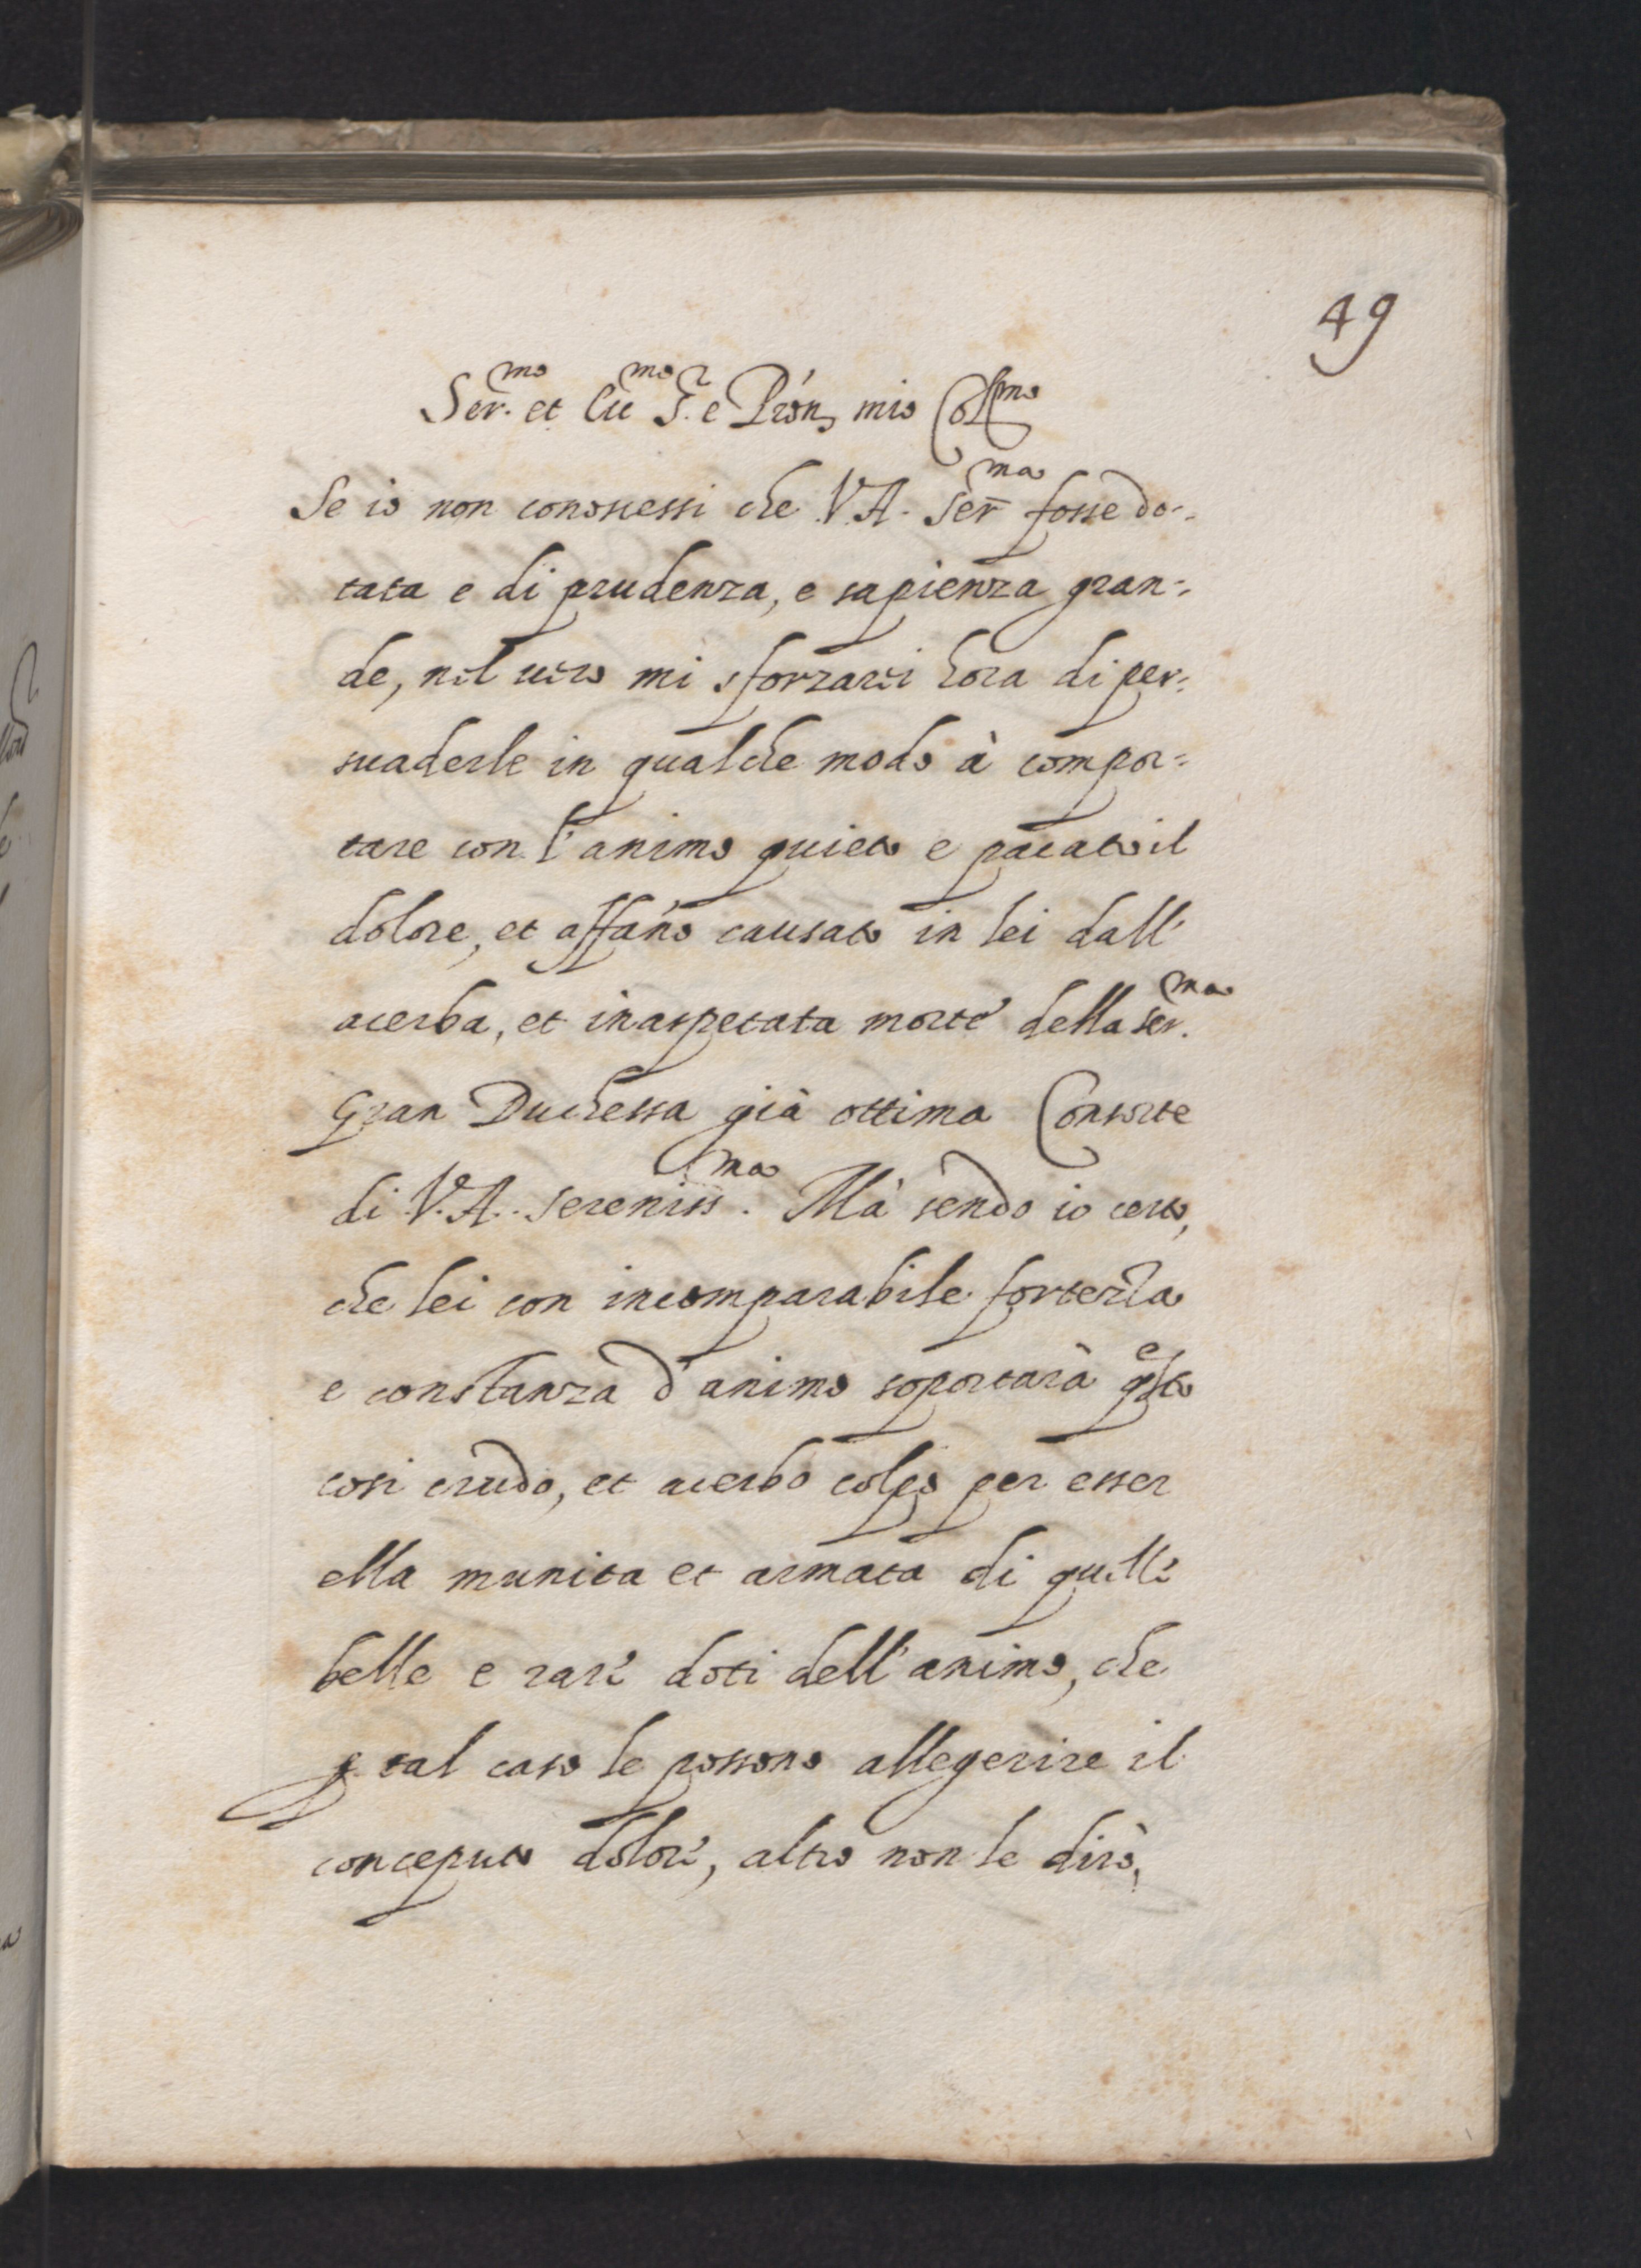 49
Ser.mo et Ecc.mo S.r e Prón mio Coll.mo
Se io non conoscessi che V.A. Ser.ma fosse do-
tata e di prudenza, e sapienza gran-
de, nel vero mi sforzarei hora di per-
suaderle in qualche modo à compor-
tare con l'animo quieto e pacato il
dolore, et affano causato in lei dall'
acerba, et inaspetata morte della Ser.ma
Gran Duchessa già ottima Consorte
di V.A. Sereniss.ma. Mà sendo io certo,
che lei con incomparabile fortezza
e constanza d'animo soportarà q.esto
cosi crudo, et acerbo colpo per esser
ella munita et armata di quelle
belle e rare doti dell'animo, che
p tal caso le possono allegerire il
conceputo dolore, altro non le dirò,